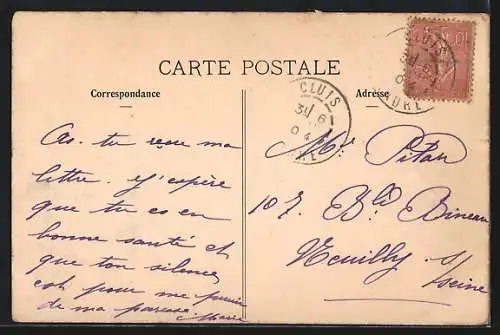 CARTE POSTALE
Correspondance
Adresse
CLUIS
31 6
04
As-tu reçu ma
lettre. J'espère
que tu es en
bonne santé et
que ton silence
est pour me punir
de ma paresse.
Marie
Pitau
107 Bld Bineau
Neuilly s/seine
CLUIS
INDRE